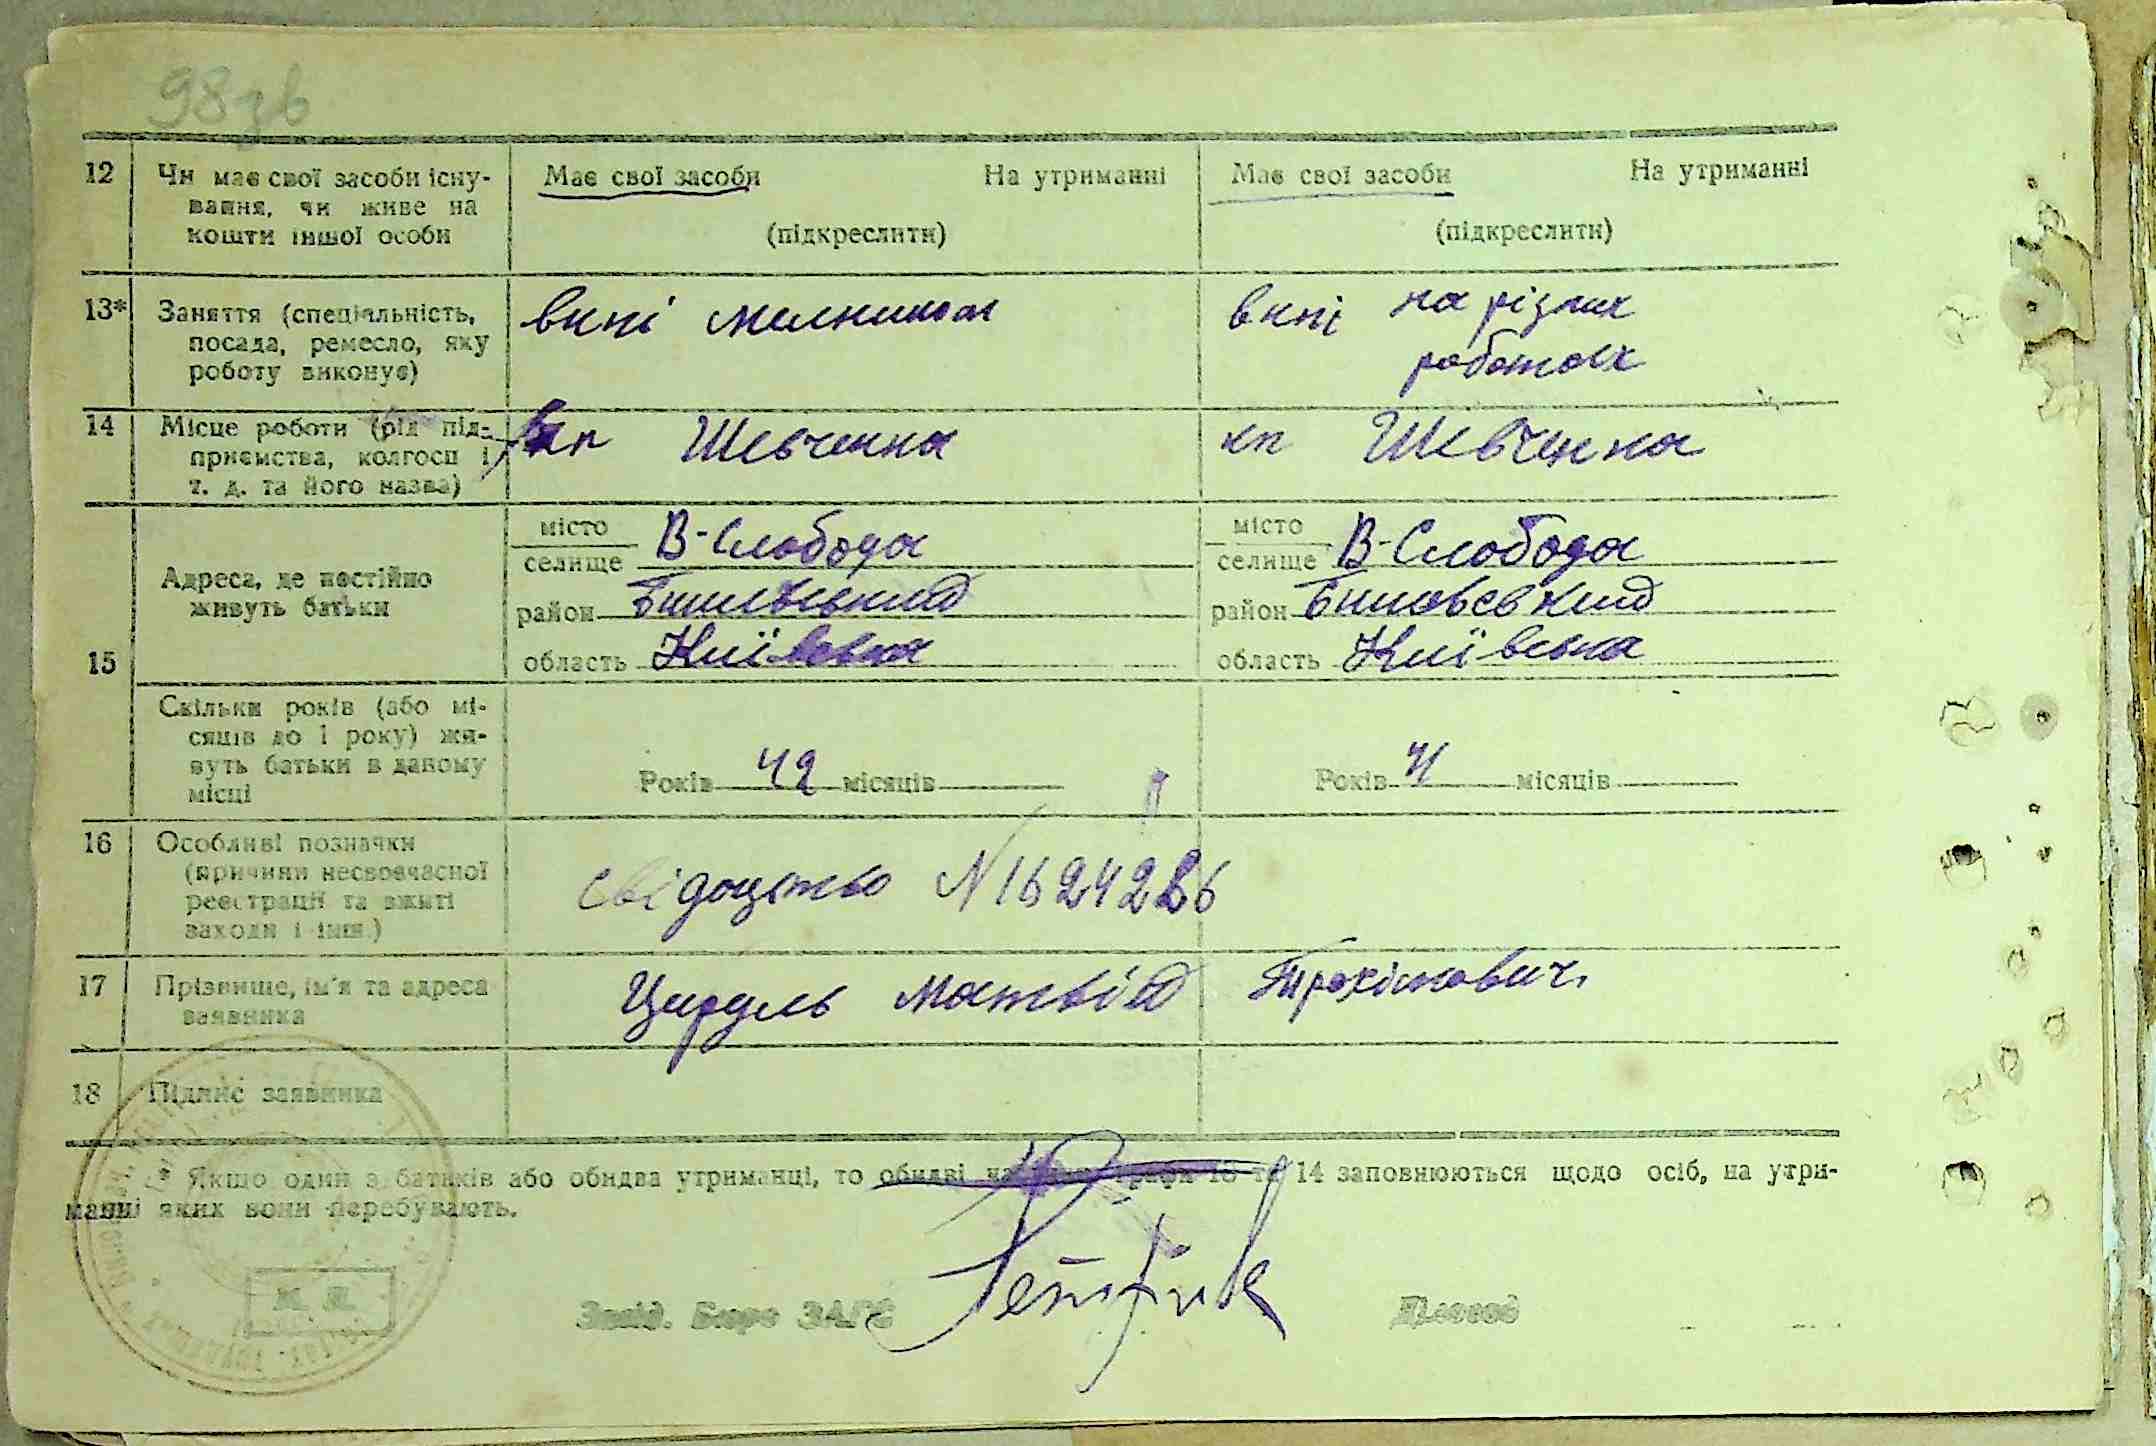 98зв
12 Чи має свої засоби існу- Має свої засоби На утриманні Має свої засоби На утриманні
вання, чи живе на
кошти іншої особи (підкреслити) (підкреслити)
13* Заняття (спеціальність, вкпі мелником вкпі на різних
посада, ремесло, яку
роботу виконує) роботах
14 Місце роботи (рід під- кп Шевченка кп Шевченка
приємства, колгосп і
т. д. та його назва)
місто В-Слобода місто В-Слобода
селище селище
15 Адреса, де постійно
живуть батьки район Бишівський район Бишовський
область Київська область Київська
Скільки років (або мі-
сяців до 1 року) жи-
вуть батьки в даному Років 42 місяців Років 41 місяців
місці
16 Особливі позначки
(причини несвоєчасної
реєстрації та вжиті свідоцтво N
заходи і інш.)
17 Прізвище, ім'я та адреса Цируль Матвій Трохимович
заявника
18 Підпис заявника
* Якщо один з батьків або обидва утриманці, то обидві графи 13 та 14 заповнюються щодо осіб, на утри-
манні яких вони перебувають.
М. П.
Завід. Бюро ЗАГС Діловод